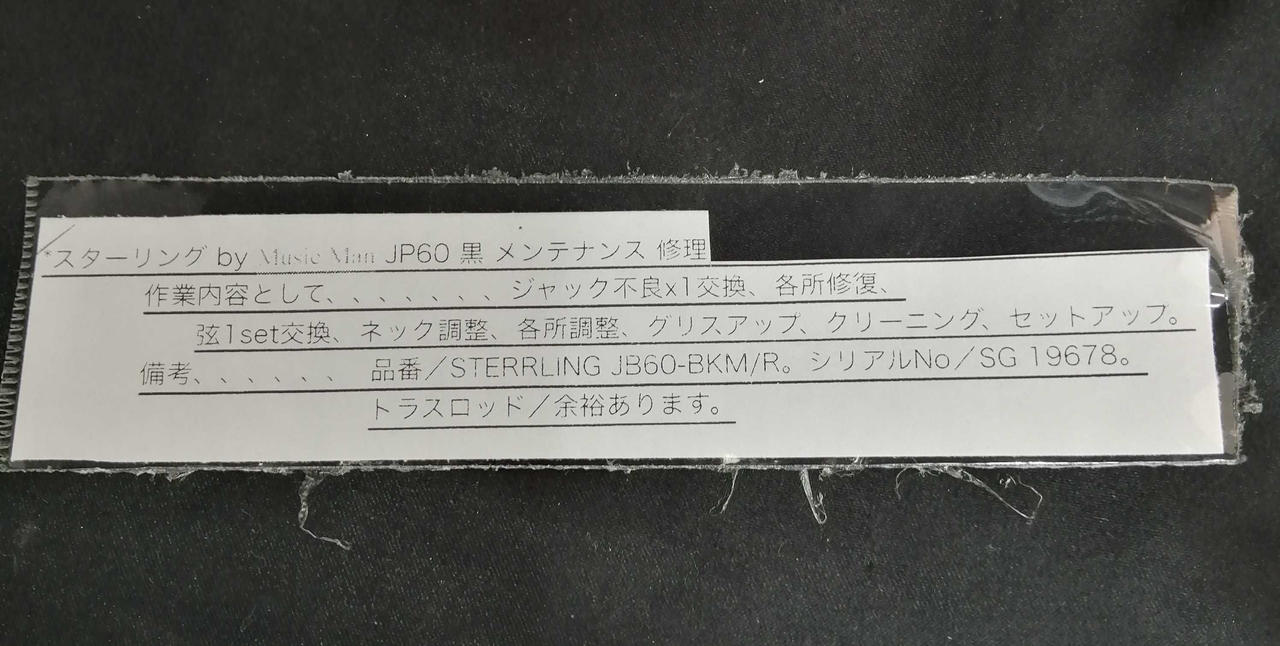 *スターリング by Music Man JP60 黒 メンテナンス 修理
作業内容として、、、、、、、ジャック不良x1交換、各所修復、
弦1set交換、ネック調整、各所調整、グリスアップ、クリーニング、セットアップ。
備考、、、、、、 品番/STERRLING JB60-BKM/R。シリアルNo/SG 19678。
トラスロッド/余裕あります。